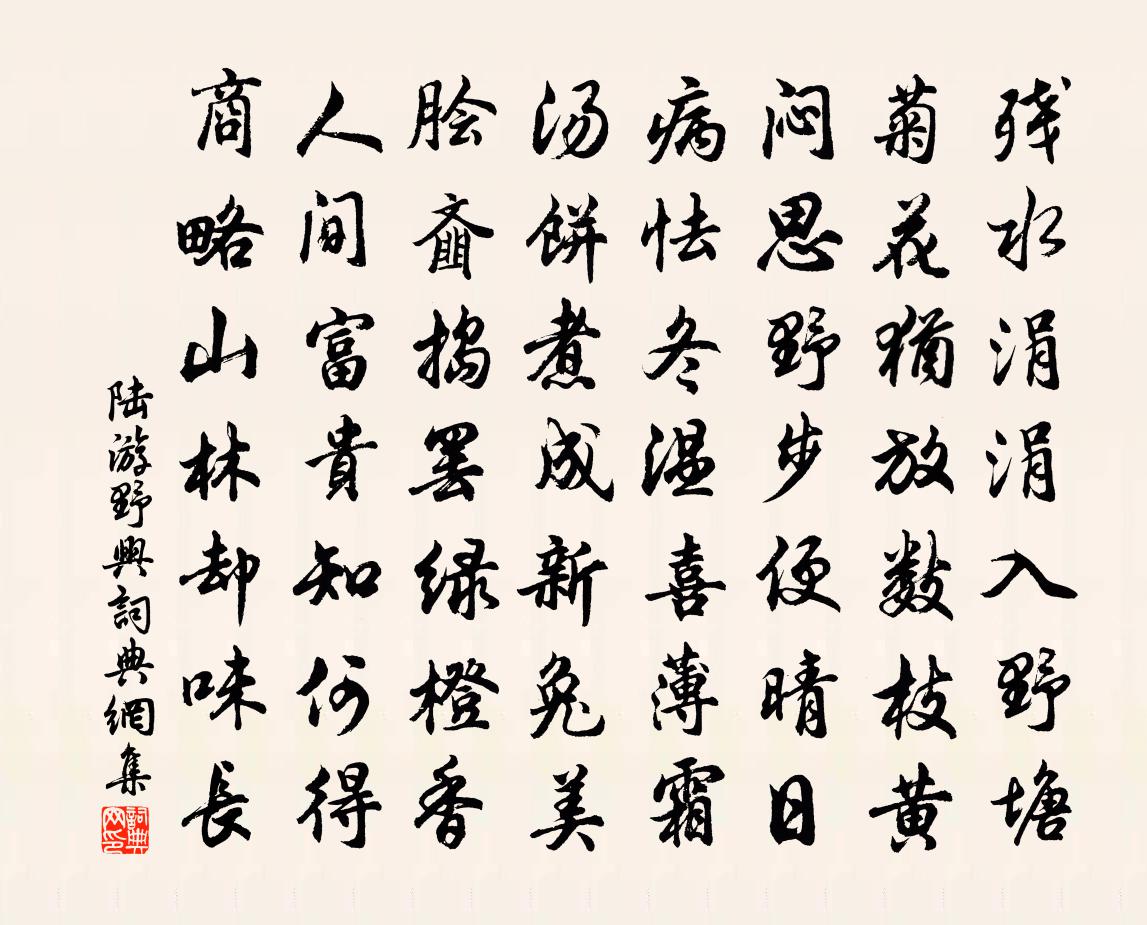 残水涓涓入野塘
菊花猶放数枝黄
闷思野步便晴日
病怯冬温喜薄霜
汤餅煮成新兔美
脍齑捣罢绿橙香
人间富貴知何得
商略山林却味長
陆游野興詞典網集
詞典网印